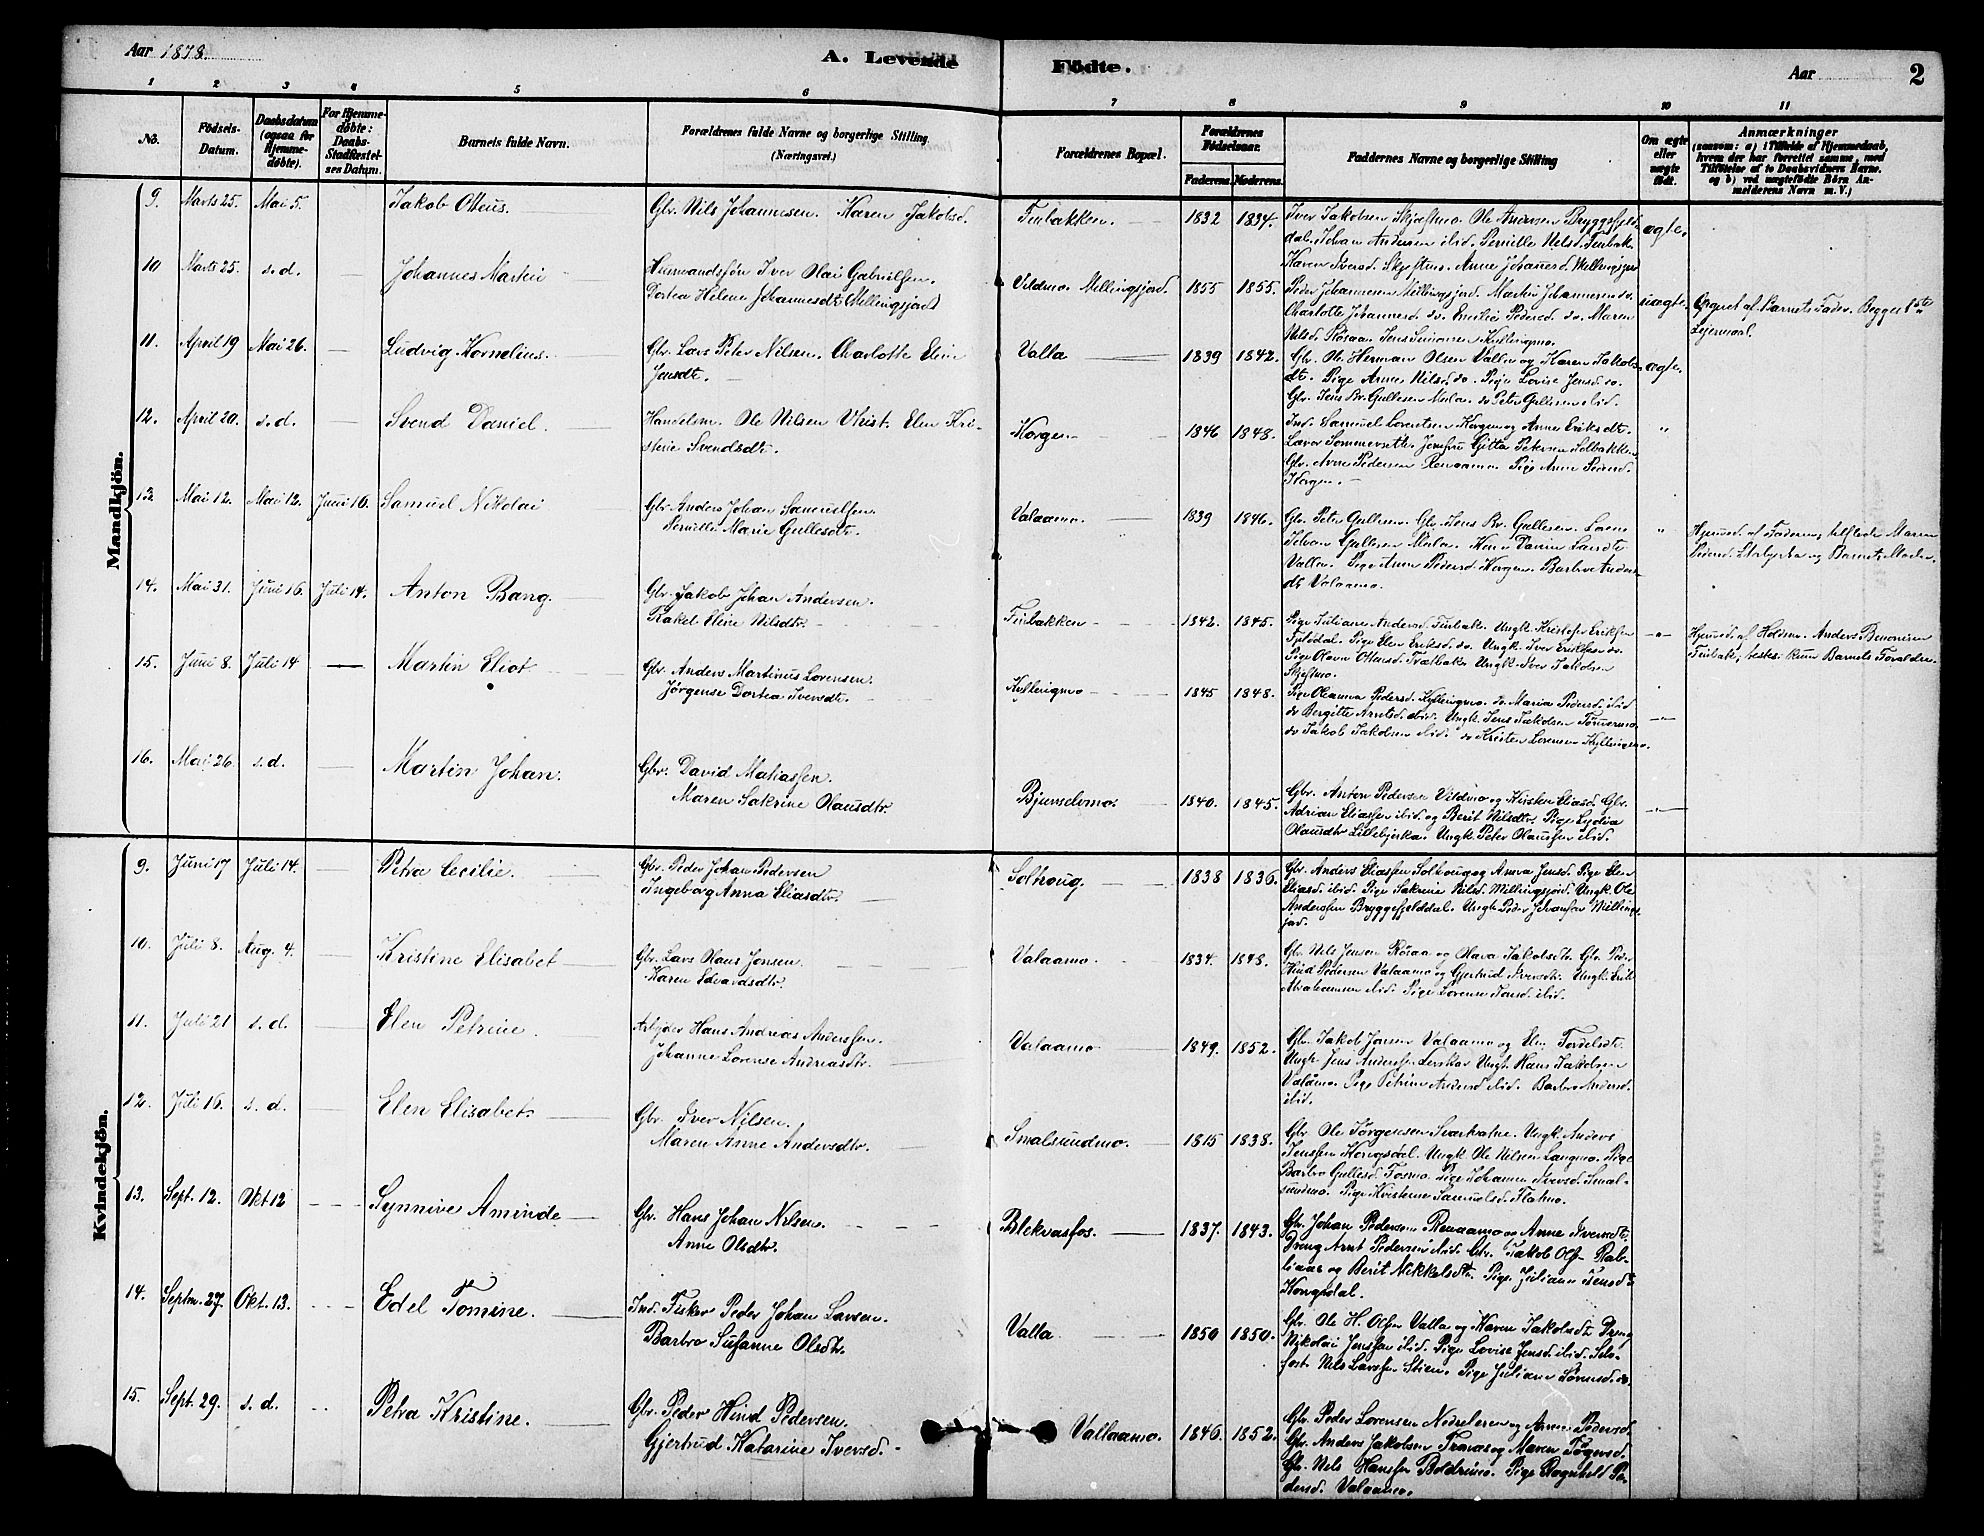 Aar 1878.
A. Levende Födte.
Aar 2
1 2 3 4 5 6 7 8 9 10 11
No.
Födsels-
Datum.
Daabsdatum
(ogsaa for
Hjemme-
döbte).
For Hjemme-
döbte:
Daabs-
Stadfæstel-
ses Datum.
Barnets fulde Navn.
Forældrenes fulde Navne og borgerlige Stilling
(Næringsvei.)
Forældrenes Bopæl.
Forældrenes
Födselsaar.
Faderens. Moderens.
Faddernes Navne og borgerlige Stilling
Om ægte
eller
uægte
födt.
Anmærkninger
(saasom: a) i Tilfælde af Hjemmedaab,
hvem der har forrettet samme, med
Tilföielse af to Daabsvidners Navne,
og b) ved uægtefödte Börn An-
melderens Navn m. V.)
Mandkjön.
9. Marts 25. Mai 5. Jakob Otteus. Gbr. Nils Johannesen. Karen Jakobsd. Finbakken. 1832 1834. ægte.
Iver Jakobsen Skjæftmo. Ole Andersen Bryggefjeld
dal. Johan Andersen ibid. Pernille Nilsd. Finbak.
Karen Iversd. Skjeftmo. Anne Johannesd. Mellingsjord
10 Marts 25. s.d. Johannes Martin Husmandssøn Iver Olai Gabrielsen.
Dortea Helene Johannesdt. Mellingsjord
Vildmo. Mellingsjord. 1855 1855. uægte.
Peder Johannesen Mellingsjord. Martin Johannesen do.
Charlotte Johannesd. do. Emilie Pedersd. do. Maren
Nilsd. Røsaa. Jens Simonsen Kyllingmo.
Opgivet af Barnets Fader. Begges 1ste
Leiermaal.
11. April 19 Mai 26. Ludvig Kornelius. Gbr. Lars Peter Nilsen. Charlotte Elen
Jensdt.
Valla 1839 1842. ægte.
Gbr. Ole Herman Olsen Valla og Karen Jakobs
dt. Pige Anne Nilsd. do. Pige Lovise Jensd. do.
Gbr. Jens Br. Gullesen Mola. do Peter Gullesen ibid.
12. April 20. s.d. Svend Daniel. Handelsm. Ole Nilsen Elen Kri-
stine Svendsdt.
Korgen 1846 1848. "
Ind. Samuel Lorentsen Korgen og Anne Eriksdt.
Lærer Sommersette. Jomfru Gitta Petersen Solbakken.
Gbr. Arne Pedersen Renaamo. Pige Anne Pedersd.
Korgen.
13 Mai 12. Mai 12. Juni 16. Samuel Nikolai Gbr. Anders Johan Samuelsen.
Pernille Marie Gullesdt.
Valaamo. 1839 1846. "
Gbr. Peter Gullesen. Gbr. Jens Br. Gullesen.
Johan Gullesen Mola.
Valla. Pige Anne Pedersd. Korgen. Barbro Anders
dt. Valaamo.
Hjemmed. af Faderen, tilstede Maren
Pedersd. og Barnets Moder.
14. Mai 31. Juni 16. Juli 14. Anton Bang. Gbr. Jakob Johan Andersen.
Rakel Eline Nilsdtr.
Finbakken 1842. 1845. "
Pige Juliane Andersd. Finbak. Ungk. Kristofer Eriksen
Pige Elen Eriksd. do. Ungk. Iver Eriksen do.
Pige Olava Ottesd. Ungk. Iver Jakobsen
Skjeftmo.
Hjemmed. af Holdsm. Anders Benonisen
Finbak, testes. kun Barnets Forældre.
15. Juni 8. Juli 14 Martin Eliot Gbr. Anders Martinus Lorensen.
Jörgense Dortea Iversdt.
Kyllingmo 1845 1848. "
Pige Oleanna Pedersd. Kyllingmo. do. Maria Pedersd. ibid
do Bergitte Arntsd. ibid. Ungk. Jens Jakobsen Tömmermo.
do Jakob Jakobsen ibid. do Kristen Lorensen Kyllingmo.
16. Mai 26. s.d. Martin Johan. Gbr. David Matiassen.
Maren Sakrine Olausdtr.
Bjurselvmo. 1840. 1845. "
Gbr. Anton Pedersen Vildmo og Kirsten Eliasd. Gbr.
Adrian Eliassen ibid og Berit Nilsdtr. Pige Lydia
Olausdtr Lillebjerka. Ungk. Peter Olaussen ibid.
Kvindekjön.
9. Juni 17 Juli 14. Petra Cecilie. Gbr. Peder Johan Pedersen
Ingeborg Anna Eliasdtr.
Solhoug. 1838 1836.
Gbr. Anders Eliassen Solhoug og Anna Jensd. Pige Elen
Eliasd. ibid. Pige Sakrine Nilsd. Millingsjord. Ungk. Ole
Anderssen Bryggefjelddal. Ungk. Peder Johansen Millings-
jord.
10. Juli 8. Aug. 4. Kristine Elisabet Gbr. Lars Olaus Jensen.
Karen Edvardsdtr.
Valaamo 1834. 1848.
Gbr. Nils Jensen Røsaa og Olava Jakobsdtr. Gbr. Peder
Hind Pedersen Valaamo og Gjertrud Iversdtr. Ungk. Erik
Abrahamsen ibid. Pige Lorense Larsd. ibid.
11. Juli 21 s.d. Elen Petrine. Arbejder Hans Andreas Anderssen.
Johanne Lorense Andreasdtr.
Valaamo 1849. 1852.
Gbr. Jakob Jansen Valaamo og Elen
Ungk. Jens Andersen Leskar. Ungk. Hans Jakobsen
Valåmo. Pige Petrine Andersd. ibid. Barbro Andersd.
ibid.
12. Juli 16. s.d. Elen Elisabet. Gbr. Iver Nilsen.
Maren Anne Andersdtr.
Smalsundmo. 1815 1838.
Gbr. Ole Jørgensen Svartvatne. Ungk. Anders
Jenssen Kongsdal. Ungk. Ole Nilsen Langmo. Pige
Barbro Gullesd. Fosmo. Pige Johanna Iversd. Smal-
sundmo. Pige Kristense Samuelsd. Flatmo.
13. Sept. 12. Okt 12 Synnive Aminde Gbr. Hans Johan Nilsen.
Anne Olsdtr.
Blekvasfos. 1837. 1843.
Gbr. Johan Pedersen Renaamo og Anne Iversdt.
Dreng Arnt Pedersen ibid. Gbr. Jakob Ols. Rab-
liaas og Berit Mikkelsdt. Pige Juliane Jensdt
Kongsdal.
14. Septm. 27. Okt. 13. Edel Tomine. Ind. Fisker Peder Johan Larsen.
Barbro Susanne Olsdtr.
Valla 1850 1850.
Gbr. Ole H. Olsen Valla og Karen Jakobsdt. Dreng
Nikolai Jenssen ibid. Pige Lovise Jensd. ibid. Sels-
fost. Nils Larssen Stien. Pige Juliane Sörensd. do.
15. Sept. 29. s.d. Petra Kristine. Gbr. Peder Hind Pedersen.
Gjertrud Katarine Iversd.
Vallaamo. 1846. 1852.
Gbr. Peder Lorensen Nedreleren og Anne Pedersd.
Gbr. Anders Jakobsen og Maren
Gbr. Nils Hanssen Boldermo. Pige Ragnhild Pe-
dersd. Valaamo.